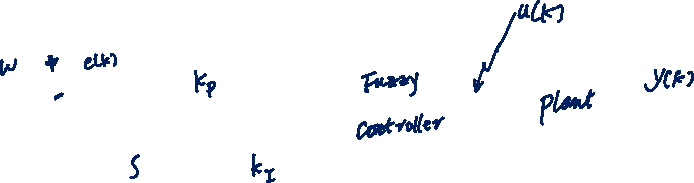 u(k)
w + e(k)
-
Kp
Fuzzy
Controller
Plant
y(k)
S
KI